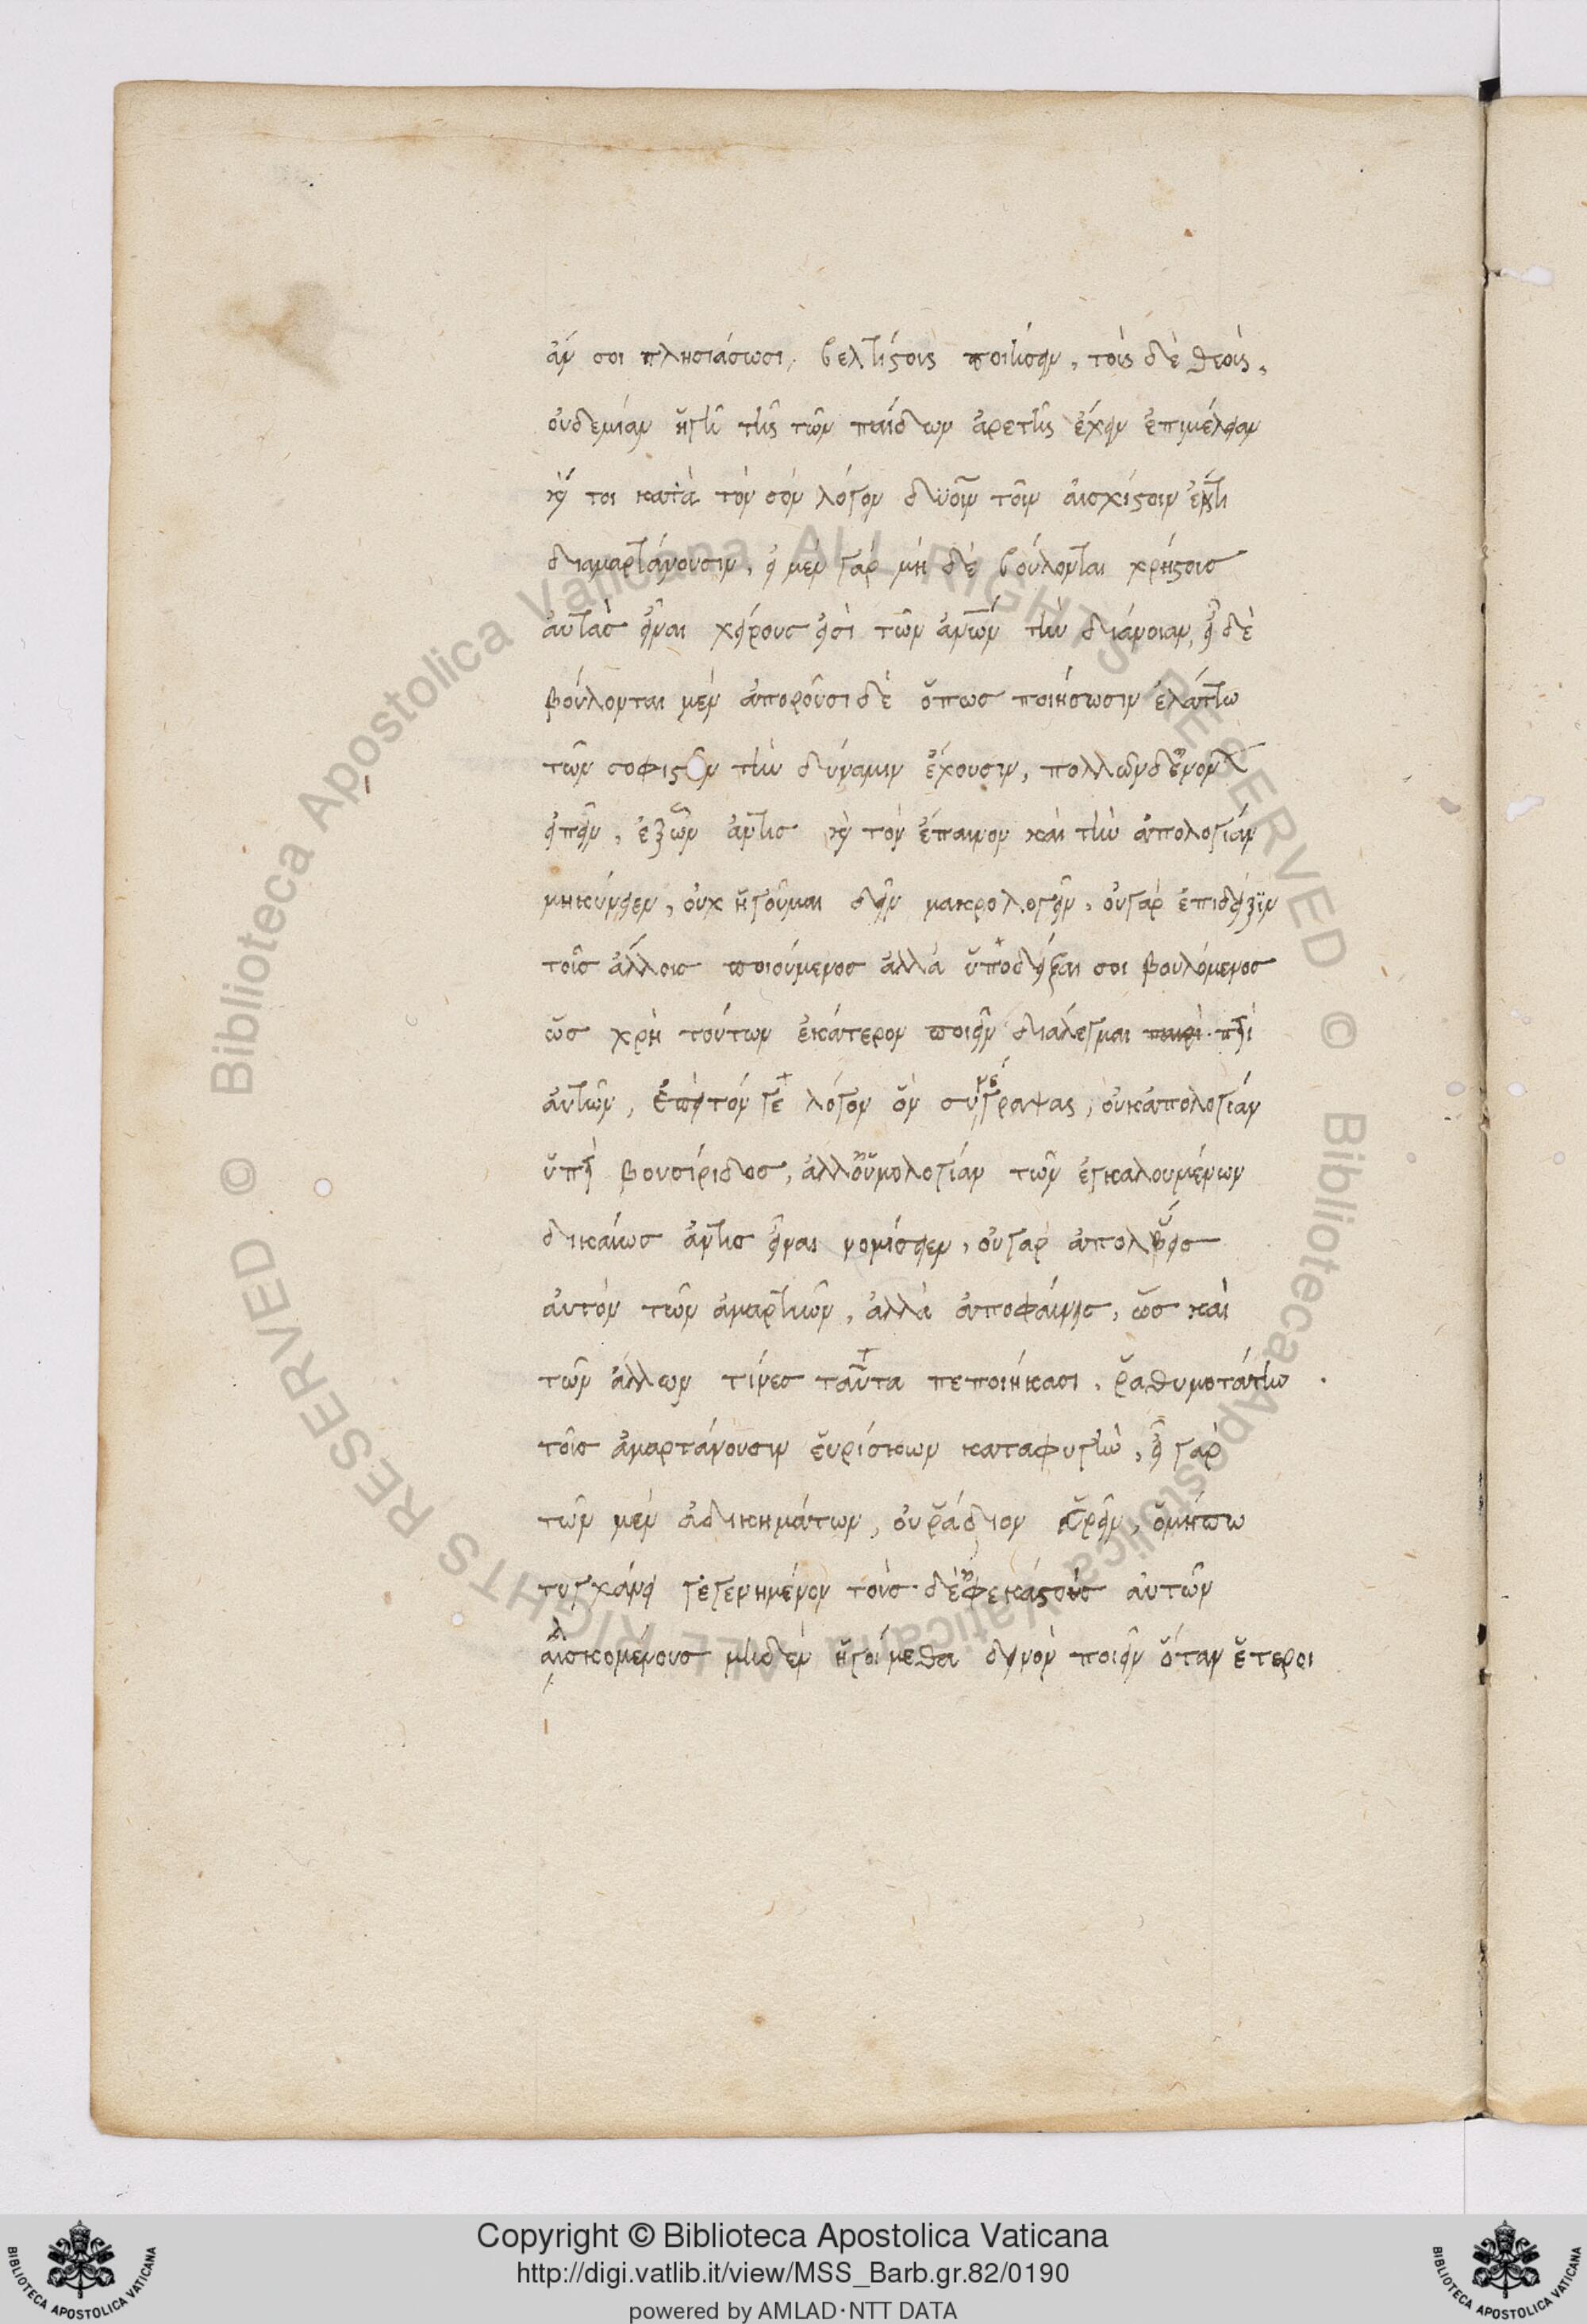 ἄν σοι πλησιάσωσι, βελτίστους ποιήσειν, τοὺς δὲ θεοὺς,
οὐδεμίαν ἡγῇ τῆς τῶν παίδων ἀρετῆς ἔχειν ἐπιμέλειαν
καί τοι κατὰ τὸν σὸν λόγον δυοῖν τοῖν αἰσχίστοιν
διαμαρτάνουσιν, εἰ μὲν γὰρ μὴ δὲ βούλονται χρηστοὺσ
αὐτοὺσ εἶναι χείρουσ εἰσὶ τῶν ἀνων τὴν διάνοιαν, εἰ δὲ
βούλονται μὲν ἀποροῦσι δὲ ὅπωσ ποιήσωσιν ἐλάττω
τῶν σοφιστῶν τὴν δύναμιν ἔχουσιν, πολλῶν δ' ἐνόντων
εἰπεῖν, ἐξ ὧν ἄν τισ καὶ τὸν ἔπαινον καὶ τὴν ἀπολογίαν
μηκύνειεν, οὐχ ἡγοῦμαι δεῖν μακρολογεῖν, οὐ γὰρ ἐπίδειξιν
τοῖσ ἄλλοισ ποιούμενοσ ἀλλὰ ὑποδεῖξαι σοι βουλόμενοσ
ὡσ χρὴ τούτων ἑκάτερον ποιεῖν διαλέγμαι περὶ
αὐτῶν, ἐπεὶ τόν γε λόγον ὃν συγγέγραψας, οὐκ ἀπολογίαν
ὑπὲρ βουσίριδοσ, ἀλλ' ὁμολογίαν τῶν ἐγκαλουμένων
δικαίωσ ἄν τισ εἶναι νομίσειεν, οὐ γὰρ ἀπολύεισ
αὐτὸν τῶν ἁμαρτιῶν, ἀλλὰ ἀποφαίνεισ, ὡσ καὶ
τῶν ἄλλων τινεσ ταῦτα πεποιήκασι, ῥαθυμοτάτην
τοῖσ ἁμαρτάνουσιν εὑρίσκων καταφυγὴν, εἰ γὰρ
τῶν μὲν ἀδικημάτων, οὐ ῥάδιον εὑρεῖν, ὃ μήπω
τυγχάνει γεγενημένον τοὺσ δ' ἐφ' ἑκάστοισ αὐτῶν
ἁλισκομένουσ μηδὲν ἡγοίμεθα δεινὸν ποιεῖν ὅταν ἕτεροι
Copyright © Biblioteca Apostolica Vaticana
http://digi.vatlib.it/view/MSS_Barb.gr.82/0190
powered by AMLAD·NTT DATA